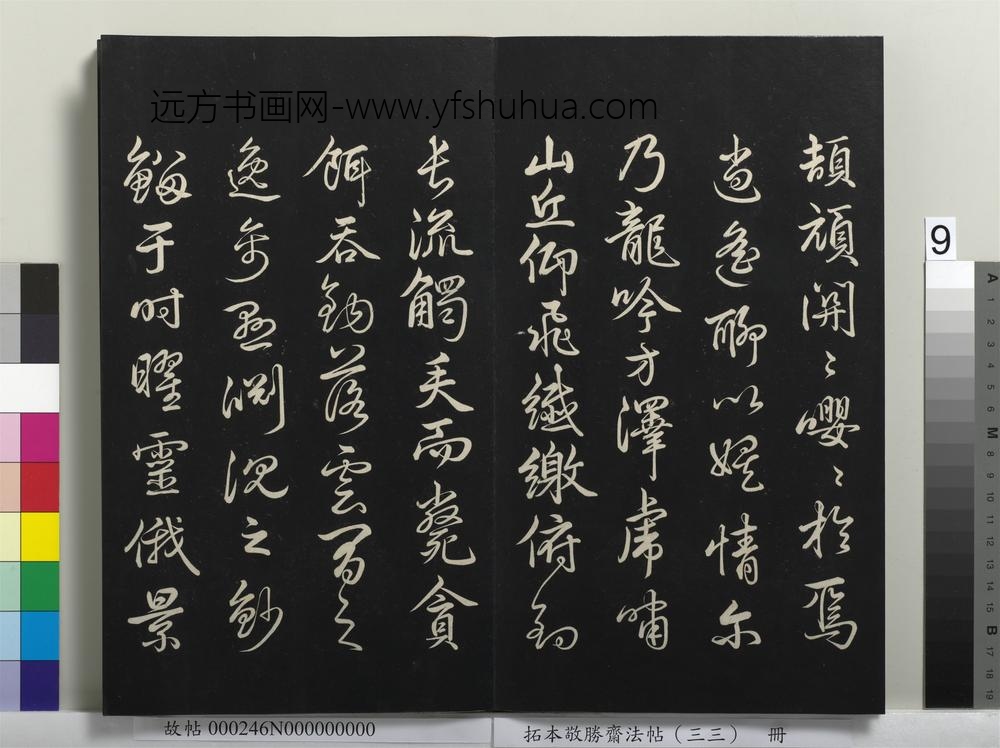 远方书画网-www.yfshuhua.com
頡頏關〻嚶〻於焉
逍遙聊以娛情尔
乃龍吟方澤虎嘯
山丘仰飛纖繳俯釣
長流觸矢而斃貪
餌吞鉤落雲間之
逸禽懸淵沉之魦
鰡于时曜靈俄景
9
故帖 000246N000000000
拓本敬勝齋法帖（三三） 冊
A
1
2
3
4
5
6
M
8
9
10
11
12
13
14
15
B
17
18
19